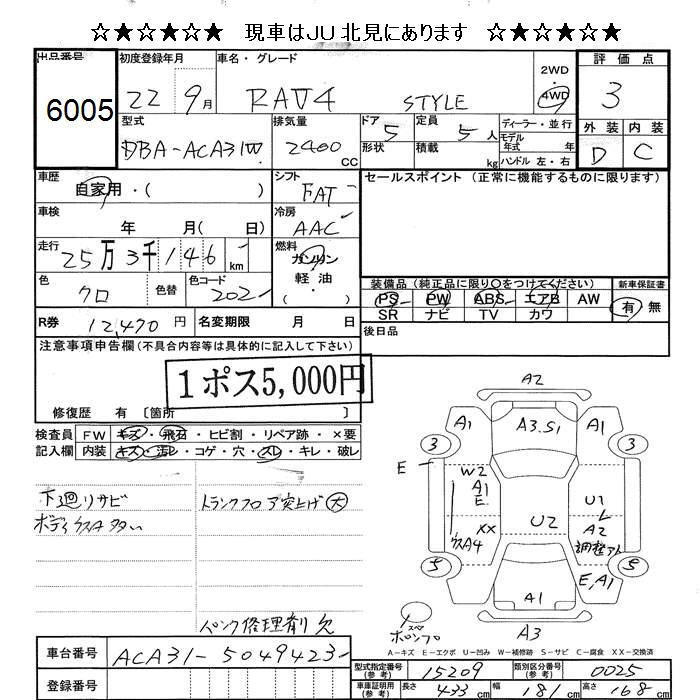 ☆★☆★☆★ 現車はJU北見にあります ☆★☆★☆★
出品番号 初度登録年月 車名・グレード 2WD 評価点
6005 22 9月 RAV4 STYLE 4WD 3
型式 排気量 ドア 5 定員 5人 ディーラー・並行 外装 内装
DBA-ACA31W 2400 CC 形状 積載 kg モデル年式 年 D C
ハンドル 左・右
車歴 シフト セールスポイント (正常に機能するものに限ります)
自家用・( ) FAT
車検 冷房
年 月( 日) AAC
走行 燃料
25万3千146 km ガソリン
軽油
色 色替 色コード ・( ) 装備品 (純正品に限り○をつけてください) 新車保証書
クロ 202 PS PW ABS エアB AW 有 無
SR ナビ TV カワ
R券 12,470円 名変期限 月 日 後日品
注意事項申告欄(不具合内容等は具体的に記入して下さい)
1ポス5,000円
修復歴 有 〔箇所 〕
検査員 FW キズ・飛石・ヒビ割・リペア跡・×要
記入欄 内装 キズ・汚レ・コゲ・穴・スレ・キレ・破レ
下廻リサビ トランクフロア突上げ 大
ボディクスA多い
パンク修理剤欠
A2
A1 A3.S1 A1
3 3
E W2
A1
E U1
XX U2 A2
クスA4 調整アト
5 5
A1 E,A1
スペ A3
A-キズ E-エクボ U-凹み W-補修跡 S-サビ C-腐食 XX-交換済
車台番号 ACA31-5049423
型式指定番号(参考) 15209 類別区分番号(参考) 0025
登録番号 車体証明用(参考) 長さ 433cm 幅 181cm 高さ 168cm